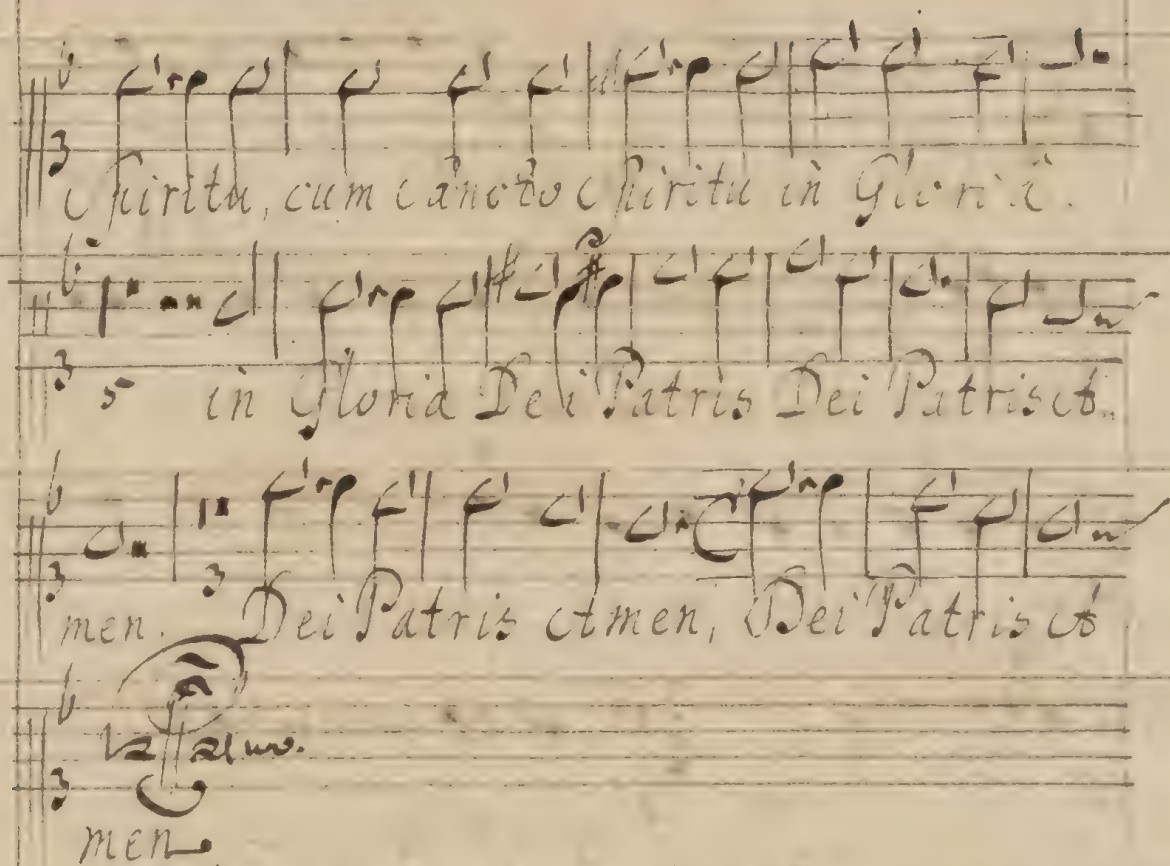 Spiritu, cum Sancto Spiritu in Gloria.
5 in Gloria Dei Patris Dei Patris A
men. Dei Patris Amen, Dei Patris A
men